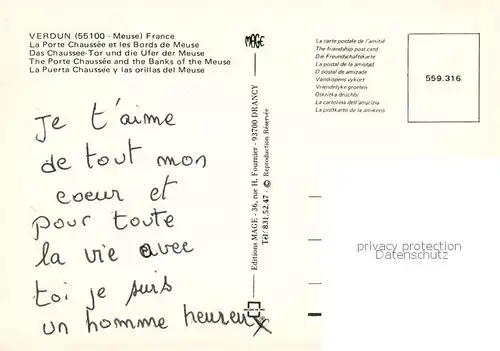 VERDUN (55100 - Meuse) France
La Porte Chaussée et les Bords de Meuse
Das Chaussee-Tor und die Ufer der Meuse
The Porte Chaussée and the Banks of the Meuse
La Puerta Chaussée y las orillas del Meuse
Je t'aime
de tout mon
coeur et
pour toute
la vie avec
toi je suis
un homme heureux
MAGE
Editions MAGE - 36, rue H. Fournier - 93700 DRANCY
Tél: 831.52.47 - © Reproduction Réservée
La carte postale de l'amitié
The friendship post card
Die Freundschaftskarte
La postal de la amistad
O postal de amizade
Vanskopens vykort
Vriendelijke groeten
Otkritka druchbi
La cartolina dell'amicizia
La poŝtkarto de la amikeco
559.316
privacy protection
Datenschutz